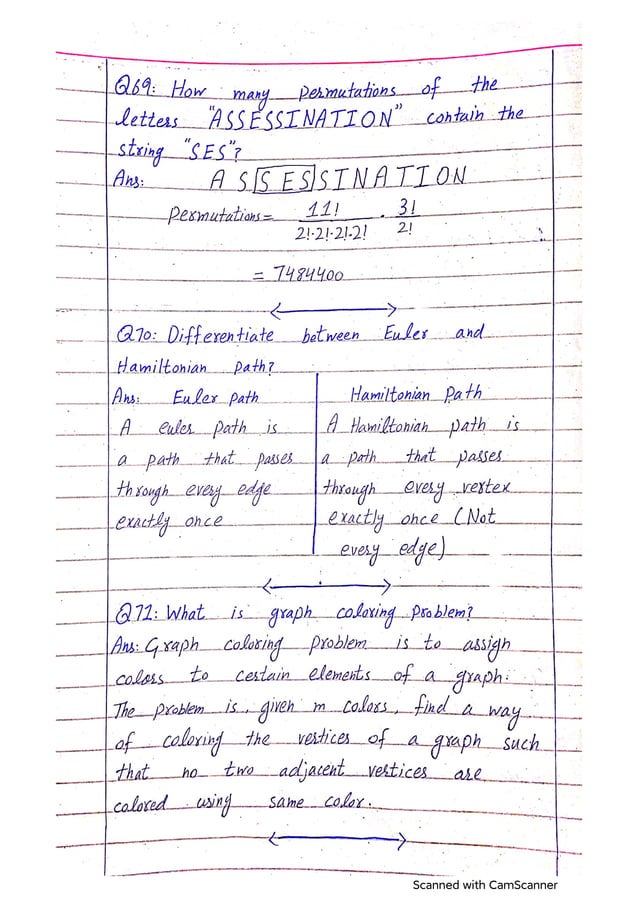 Q69: How many permutations of the
letters "ASSESSINATION" contain the
string "SES"?
Ans: A S SES SINATION
Permutations = 11!/2!·2!·2!·2! · 3!/2!
= 7484400
Q70: Differentiate between Euler and
Hamiltonian path?
Ans: Euler path
A euler path is
a path that passes
through every edge
exactly once
Hamiltonian path
A Hamiltonian path is
a path that passes
through every vertex
exactly once (Not
every edge)
Q71: What is graph coloring problem?
Ans: Graph coloring problem is to assign
colors to certain elements of a graph.
The problem is, given m colors, find a way
of coloring the vertices of a graph such
that no two adjacent vertices are
colored using same color.
Scanned with CamScanner